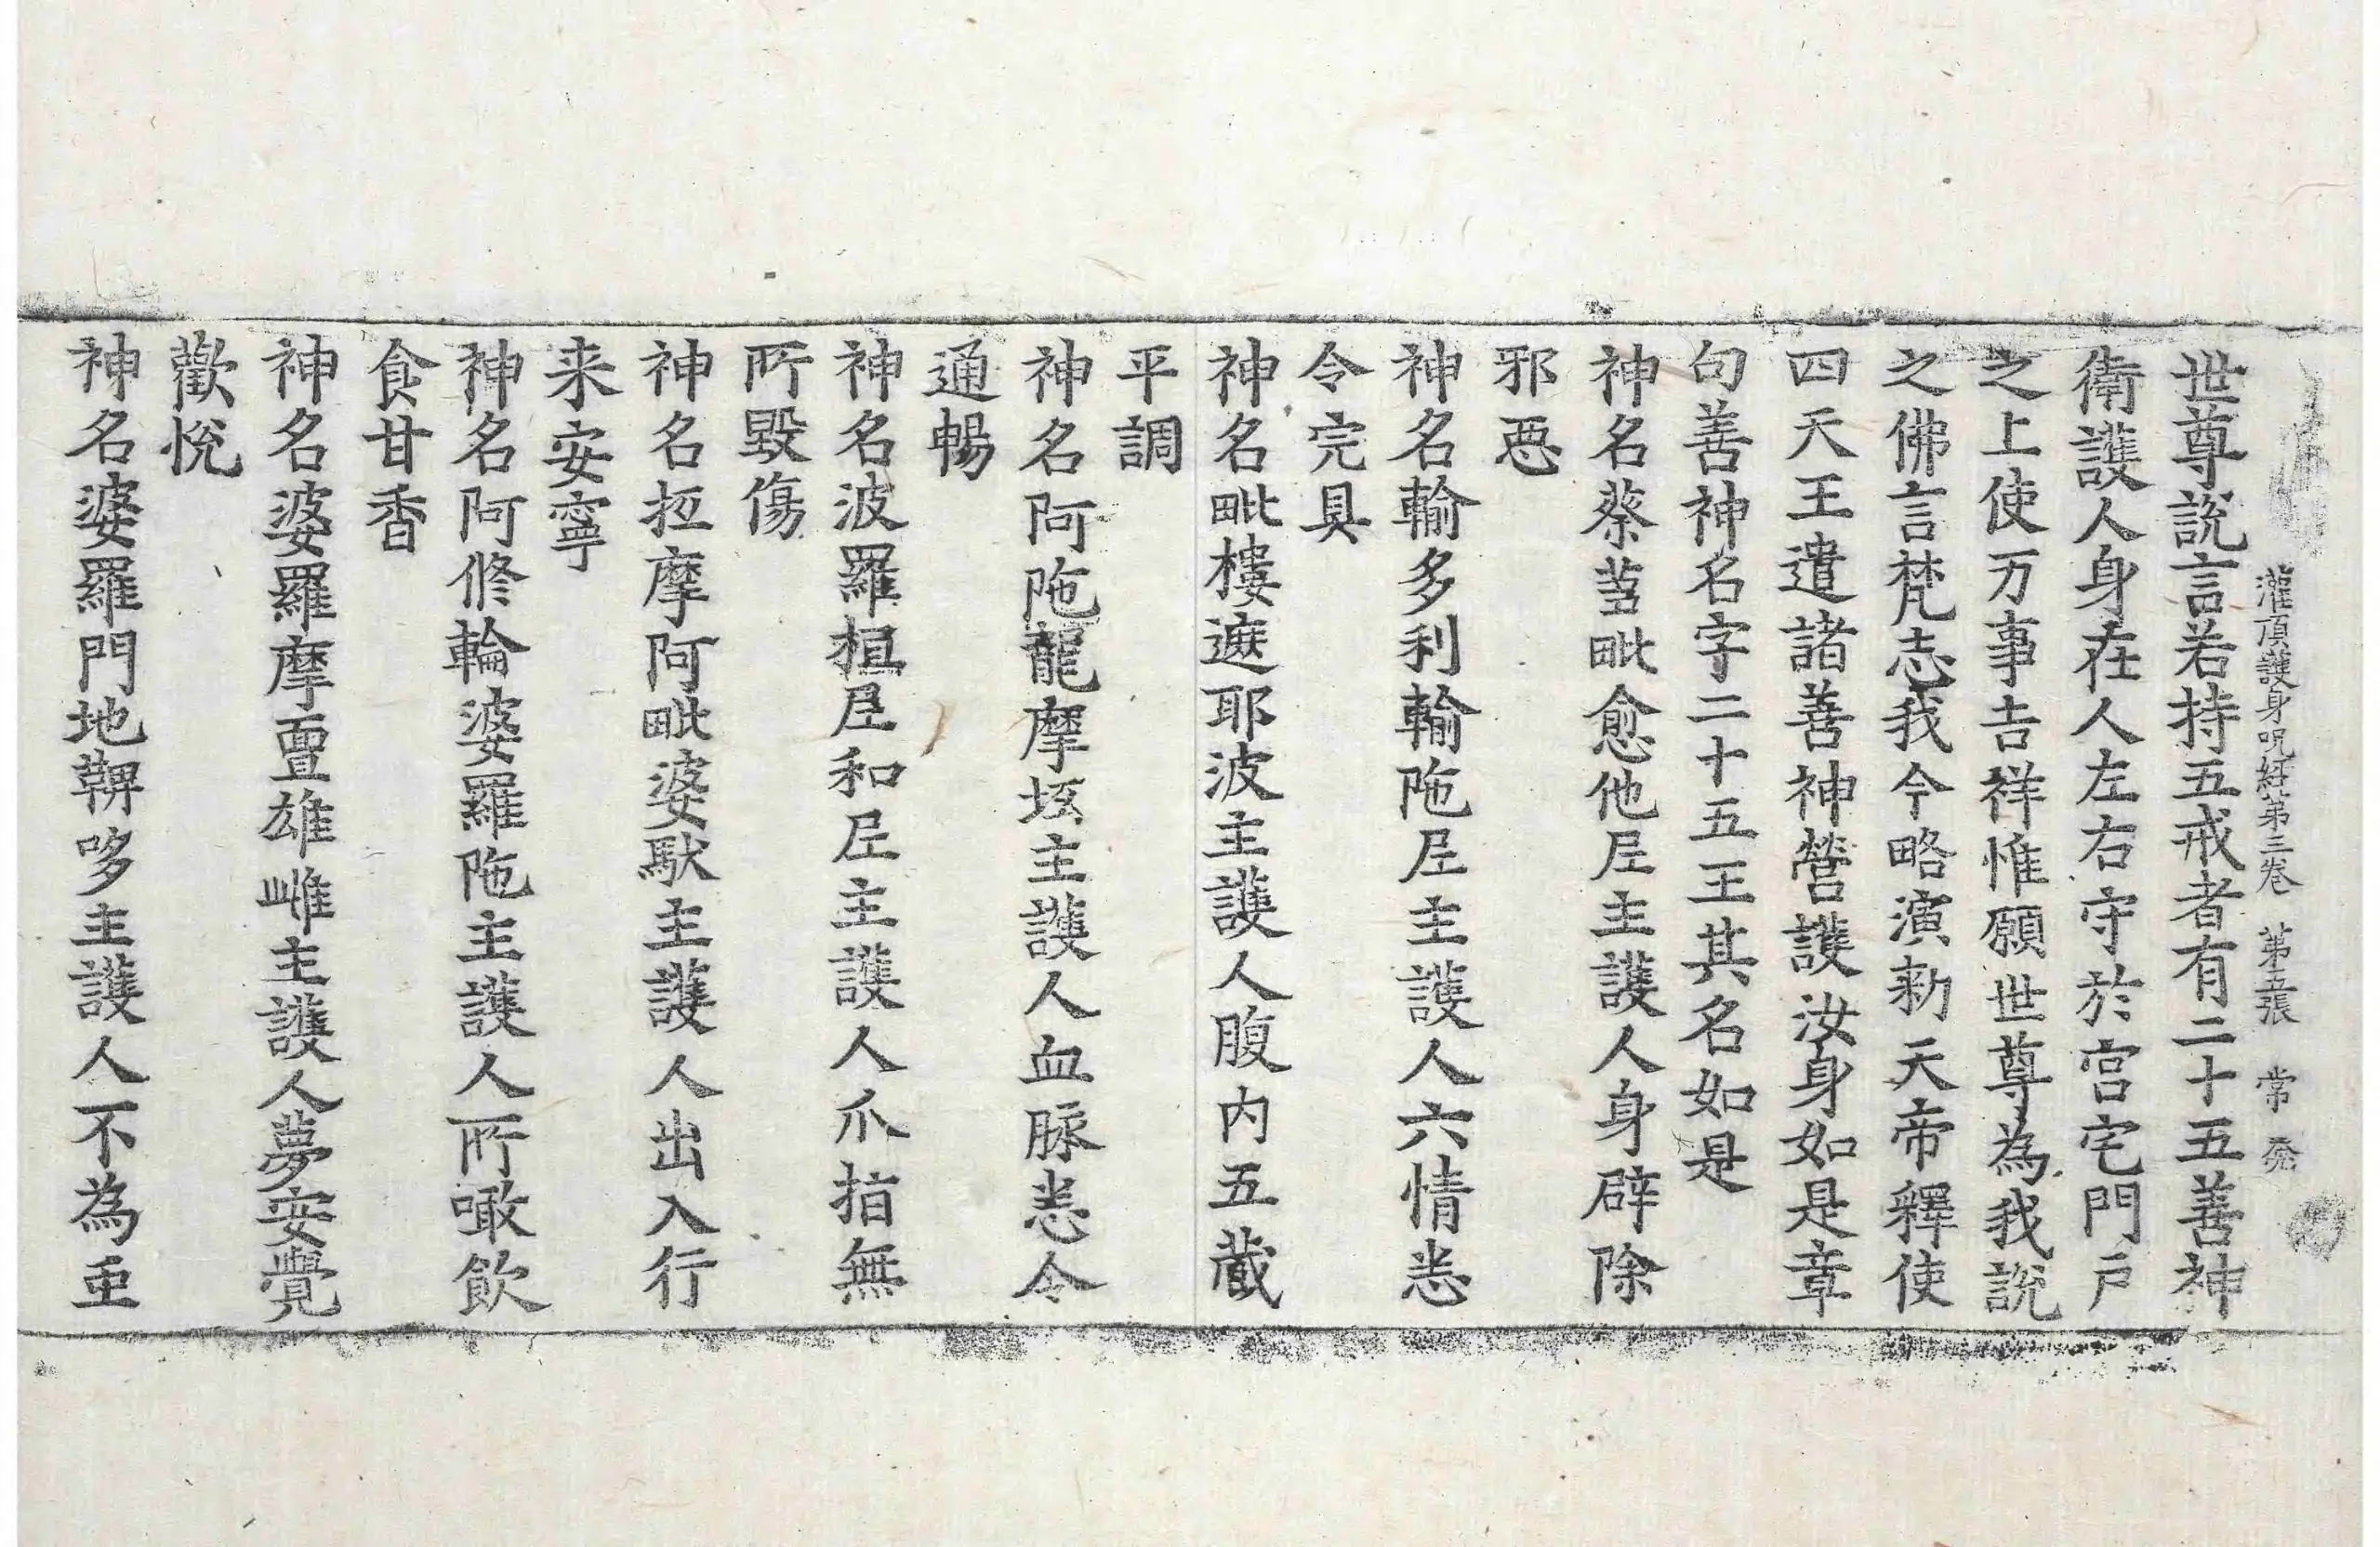 灌頂護身呪経第三卷 第五張 常
世尊說言若持五戒者有二十五善神
衛護人身在人左右守於宫宅門戶
之上使万事吉祥惟願世尊為我說
之佛言梵志我今略演勑天帝釋使
四天王遣諸善神營護汝身如是章
句善神名字二十五王其名如是
神名蔡蒭毗愈他𡰱主護人身辟除
邪惡
神名輸多利輸陁𡰱主護人六情悉
令完具
神名毗樓遮耶波主護人腹内五蔵
平調
神名阿陁龍摩坻主護人血脉悉令
通暢
神名波羅桓𡰱和𡰱主護人爪指無
所毀傷
神名抠摩阿毗婆馱主護人出入行
来安寧
神名阿脩輪婆羅陁主護人所噉飲
食甘香
神名婆羅摩亶雄雌主護人夢安覺
歡悅
神名婆羅門地鞞哆主護人不為䖝